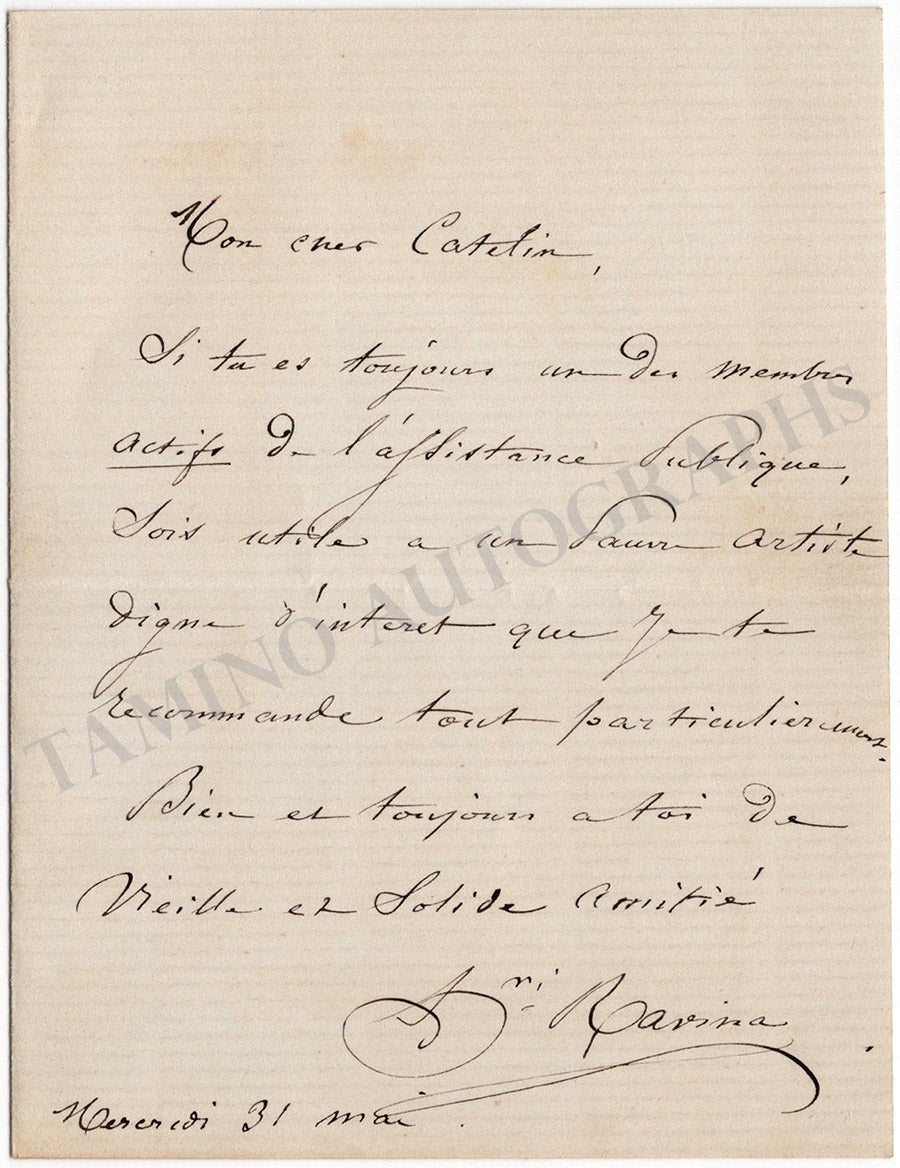 Mon cher Catelin,
Si tu es toujours un des membres
actifs de l'assistance Publique,
Sois utile a un Pauvre artiste
digne d'interet que Je te
recommande tout particulierement.
Bien et toujours a toi de
Vieille et Solide amitié
Hri Ravina
Mercredi 31 mai.
TAMINO AUTOGRAPHS